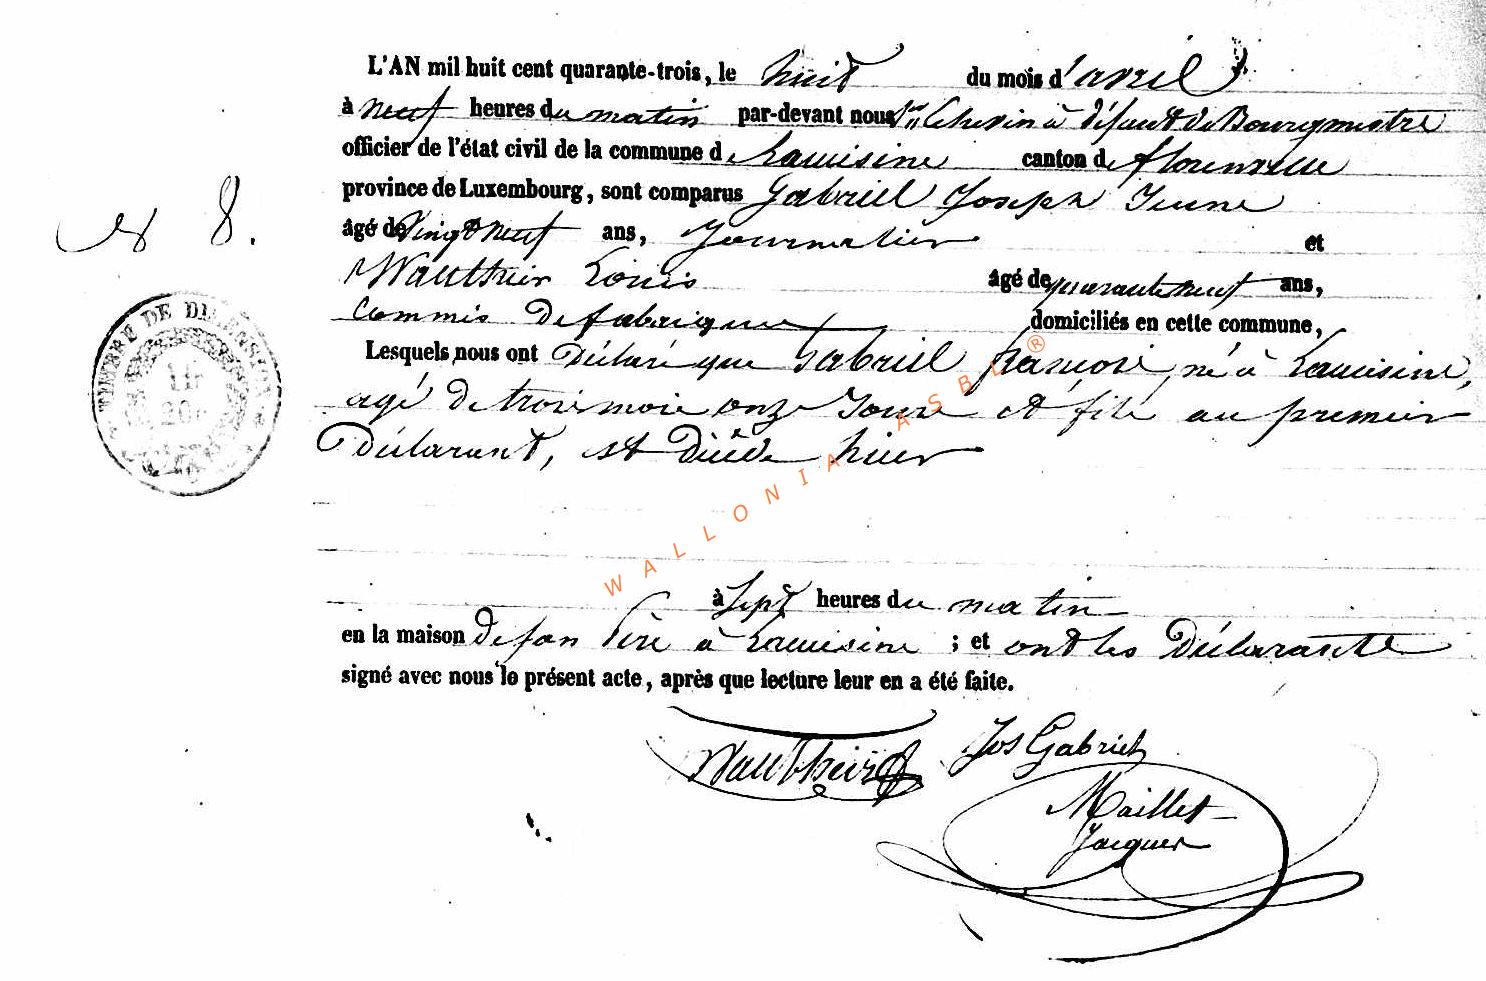 L'AN mil huit cent quarante-trois, le huit du mois d'avril
à neuf heures du matin par-devant nous Echevin à défaut de Bourgmestre
officier de l'état civil de la commune de Lacuisine canton de florenville
province de Luxembourg, sont comparus Gabriel Joseph Jeune
âgé de vingt neuf ans, Journalier et
N° 8.
Wauthier Louis âgé de quarante neuf ans,
Commis de fabrique domiciliés en cette commune,
TIMBRE DE DIMENSION
Lesquels nous ont déclaré que Gabriel françois, né à Lacuisine,
agé de trois mois onze Jours et fils au premier
Déclarant, est décédé hier
WALLONIA ASBL ®
à sept heures du matin
en la maison de son Père à Lacuisine ; et ont les Déclarants
signé avec nous le présent acte, après que lecture leur en a été faite.
Wauthier Jos Gabriel
Maillet
Jacques